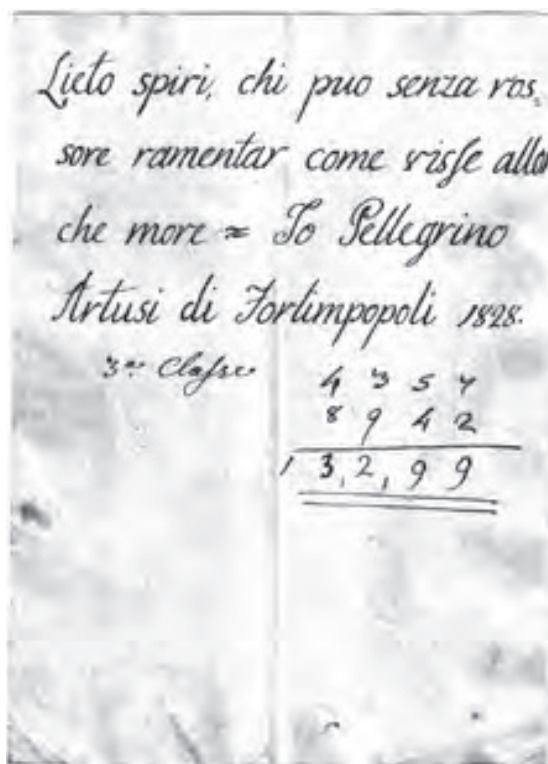 Lieto spiri, chi puo senza ros,
sore ramentar come visse allor
che more = Io Pellegrino
Artusi di Forlimpopoli 1828.
3.a Classe
4 3 5 7
8 9 4 2
1 3, 2, 9 9